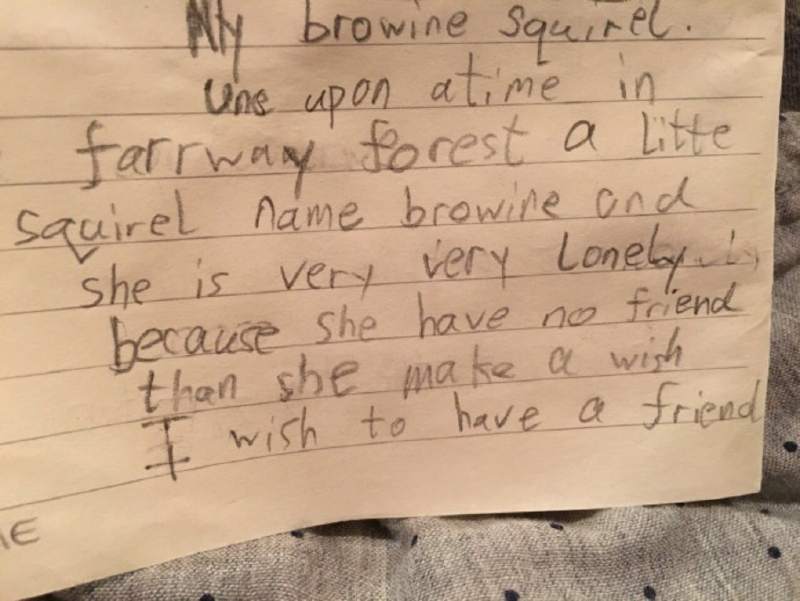 My browine squirel.
Une upon atime in
farrway forest a litte
squirel name browine and
she is very very Lonely
because she have no friend
than she make a wish
I wish to have a friend